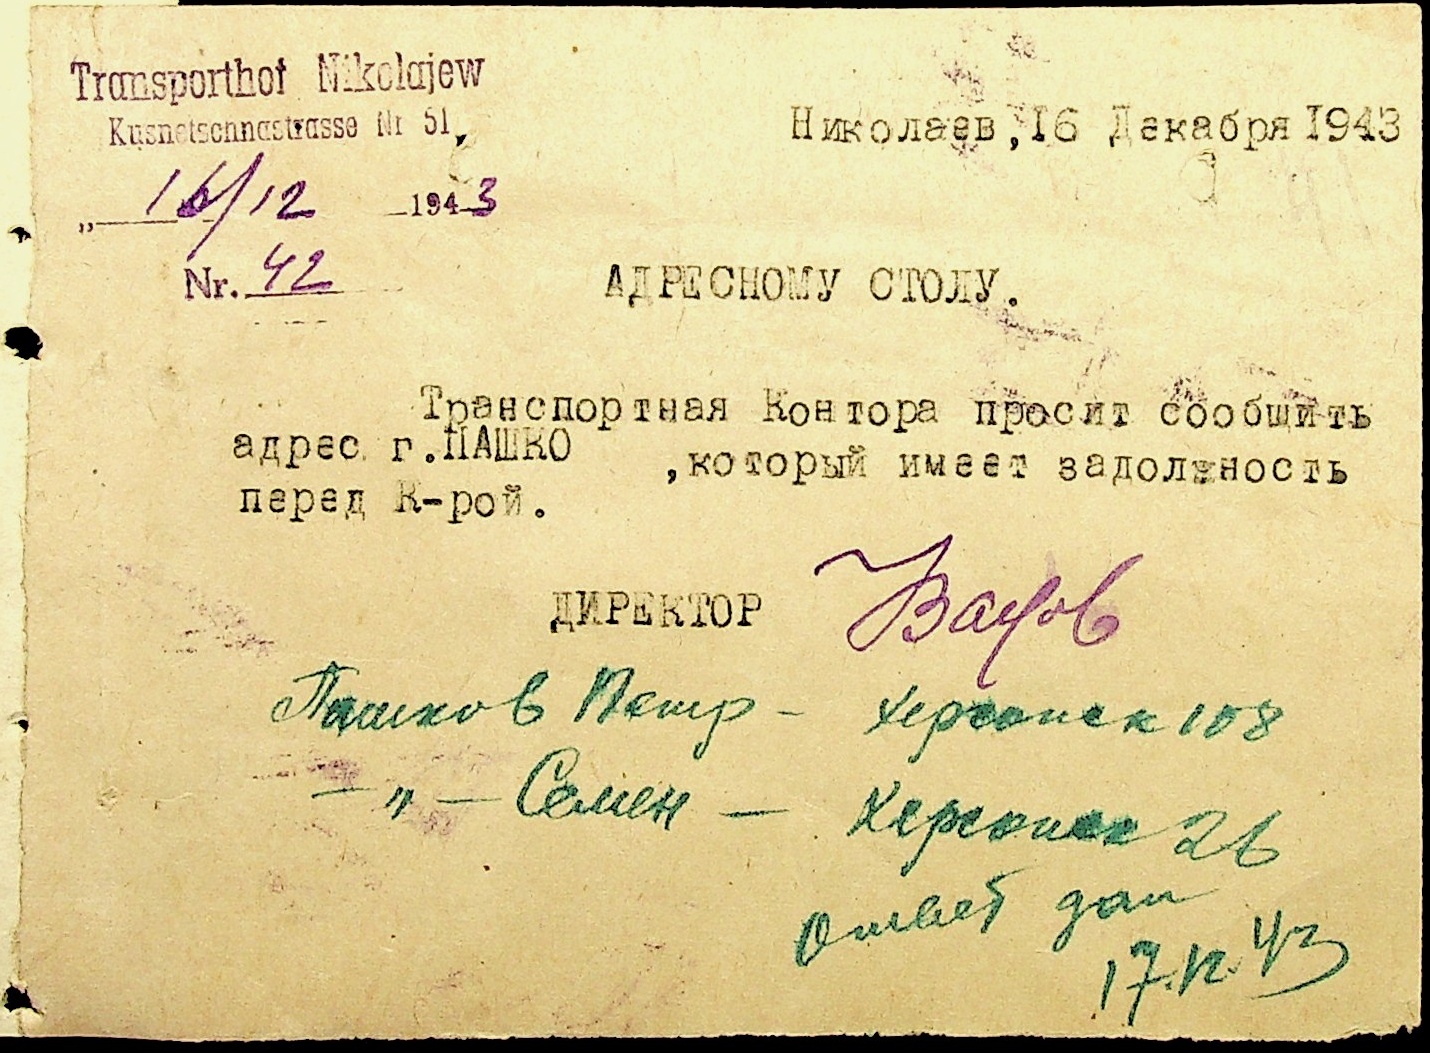 Transporthof Nikolajew
Kusnetschnastrasse Nr 51,
Николаев, 16 Декабря 1943
„ 16/12 1943
Nr. 42
АДРЕСНОМУ СТОЛУ.
Транспортная Контора просит сообщить
адрес г.ПАШКО ,который имеет задолжность
перед К-рой.
ДИРЕКТОР
Пашков Петр - Херсонск 108
— „ — Семен — Херсонск 26
Ответ дан
17.12.43